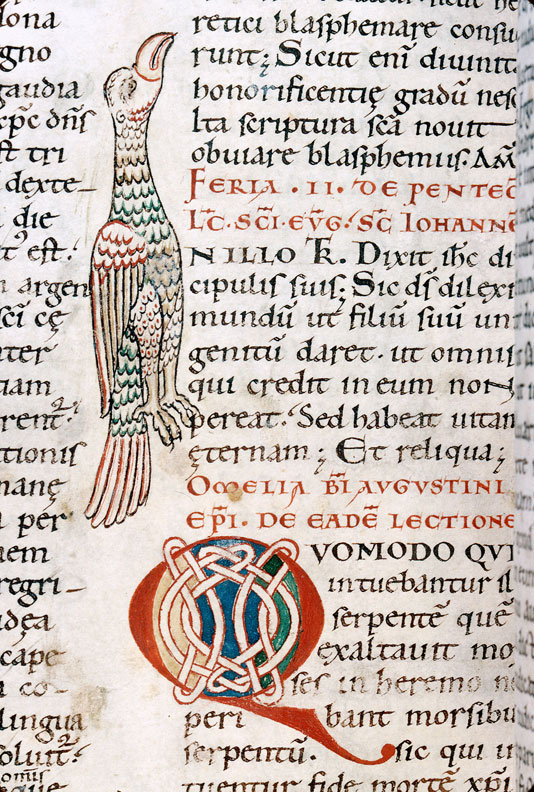 lona
gno
gaudia
xp̄c dn̄s
st tri
dexte-
die
t' est.
n argen
sci cę
ter
tiam
rent.
tionis
nanę
a per
uem
regri-
udęa
cape
a co-
lingua
soluit.
omīs
que
retici blasphemare consu
runt; Sicut enī diuinita
honorificentię gradū nesc
lta scriptura sc̄a nouit
obuiare blasphemus. Am̄
FERIA . II . DE PENTEC
LC̄. SC̄I. EVḠ. SC̄ IOHANNĒ
NILLO T̄. Dixit ih̄c di
cipulis suis; Sic ds̄ dilexi
mundū ut filiū suū un
genitū daret. ut omnis
qui credit in eum non
pereat. Sed habeat uitam
ęternam; Et reliqua;
OMELIA BĪ AVGVSTINI
EP̄I. DE EADĒ LECTIONE
QVOMODO QVI
intuebantur il
serpentē quē
exaltauit mo
ses in heremo n
peribant morsibu
serpentū. sic qui in
tuentur fide mortē xp̄i